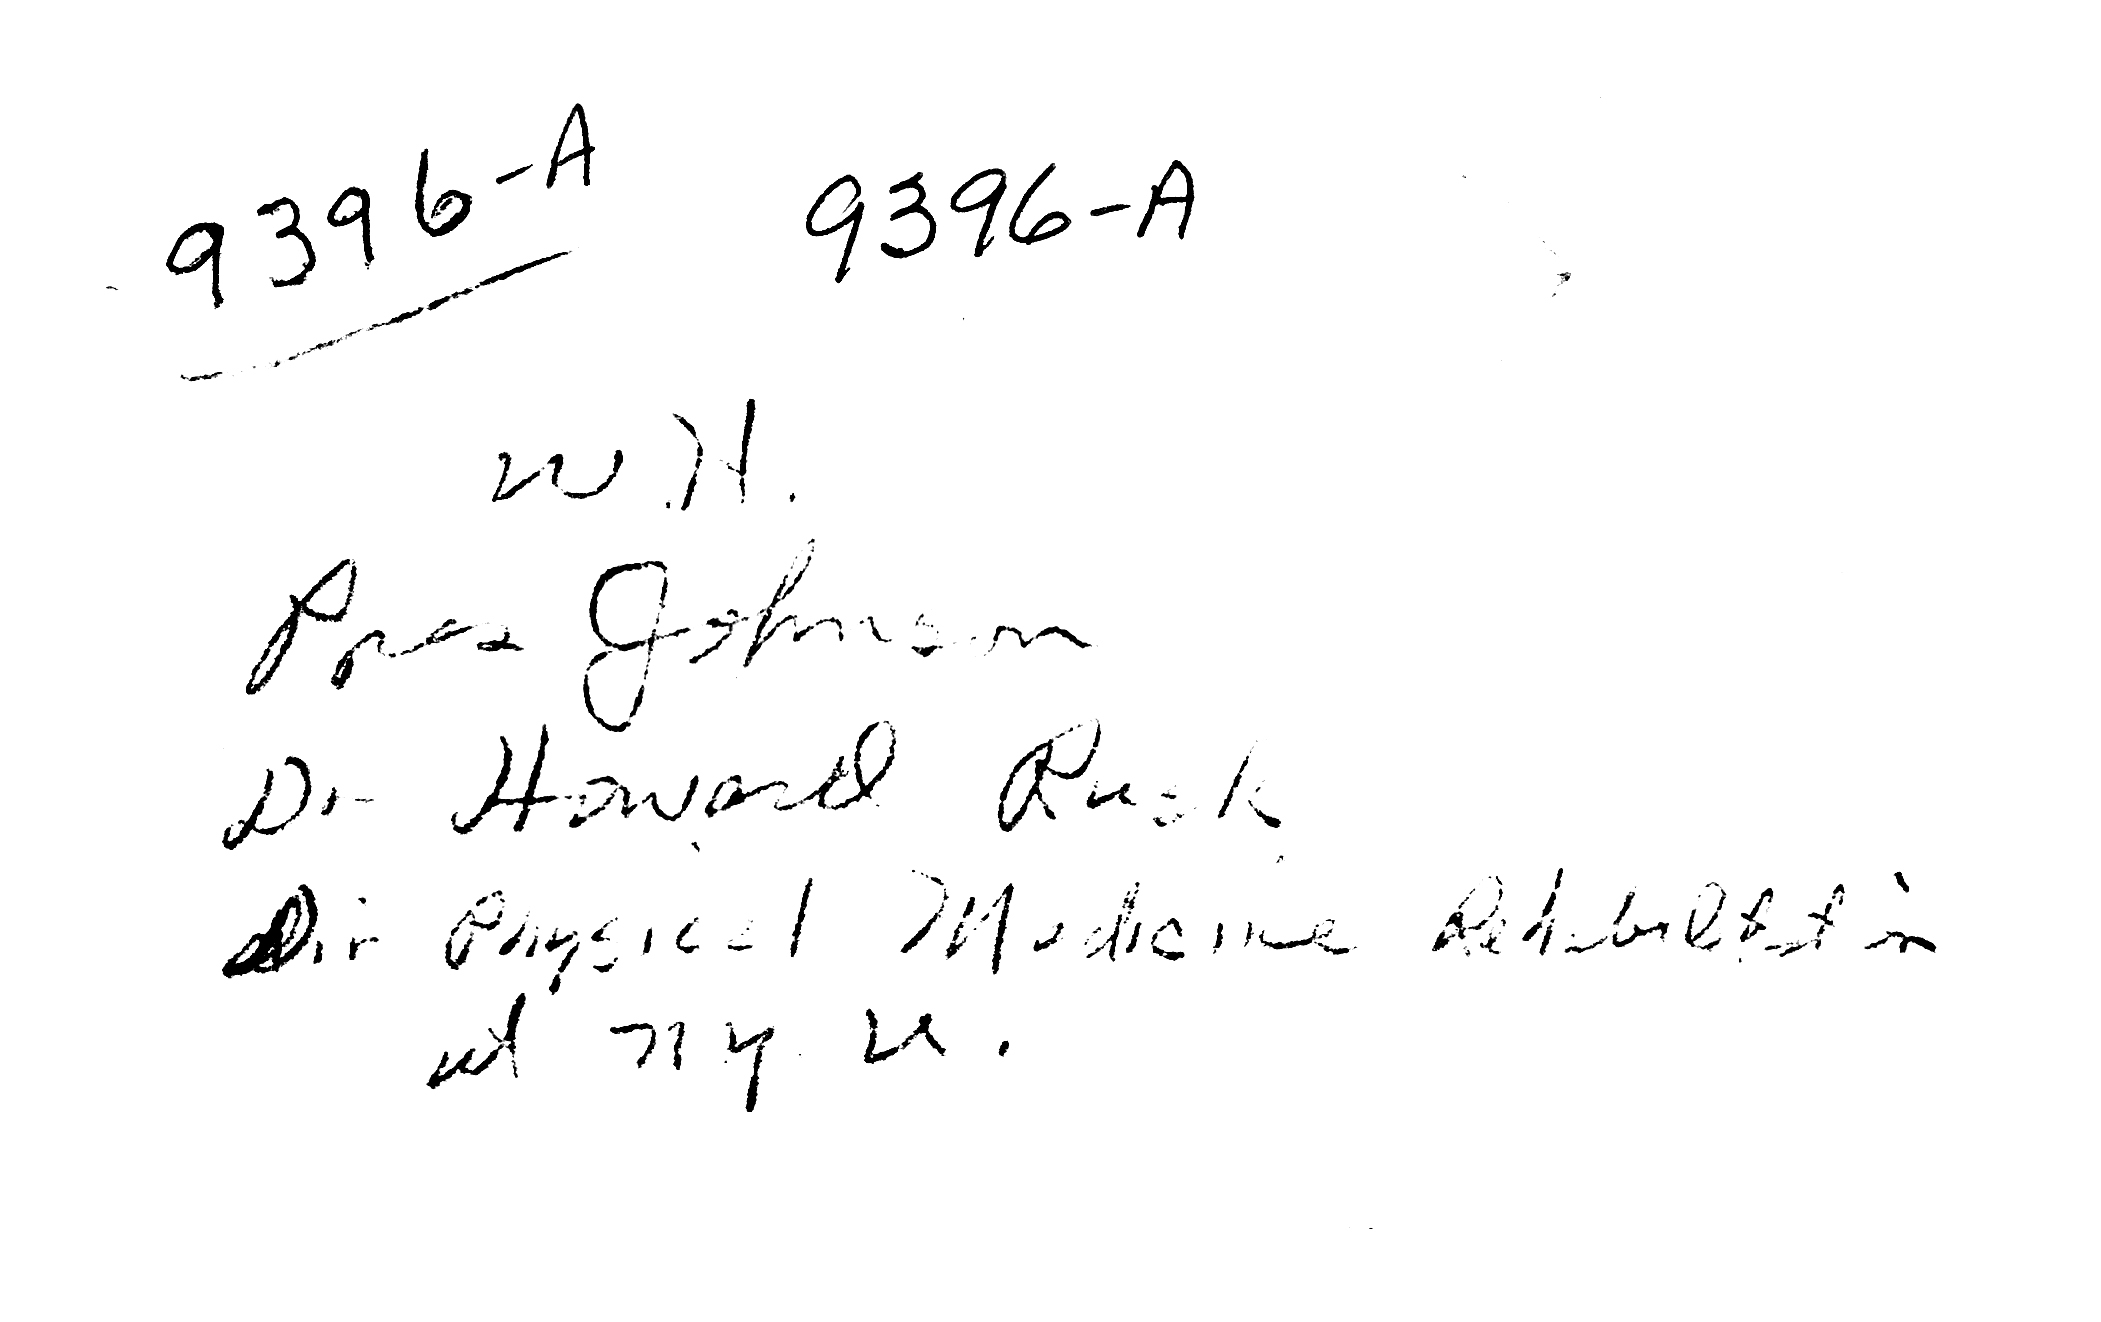 9396-A 9396-A
W.H.
Pres Johnson
Dr Howard Rusk
Dir Physical Medicine Rehabilitation
at NYU.